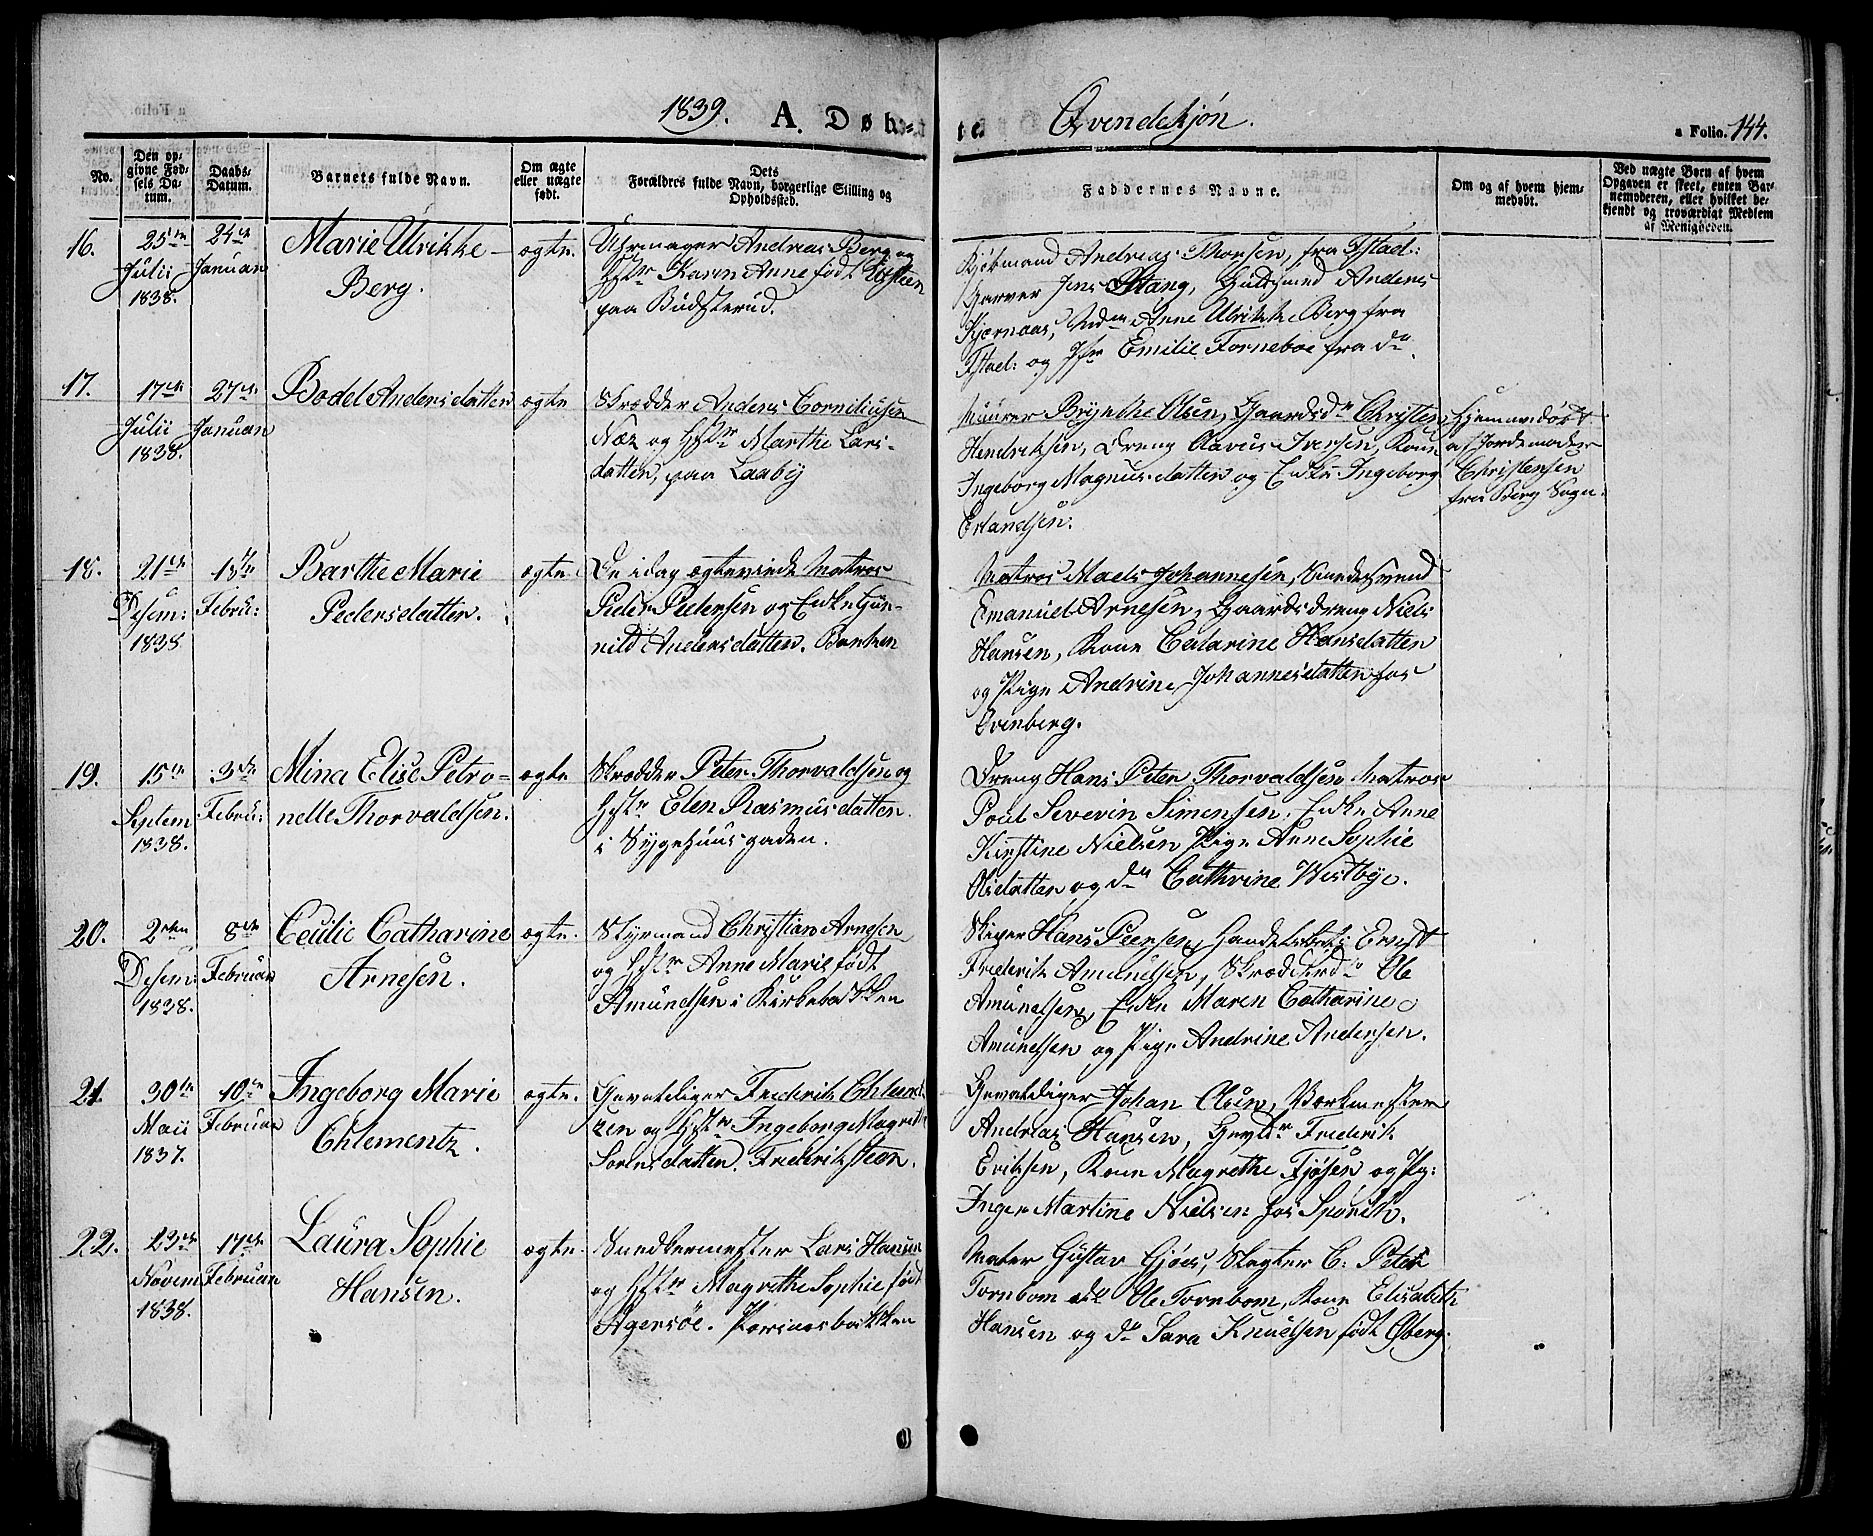 1839. A. Døb= te. Qvindekjøn. a Folio. 144.
No.
Den op= givne Fød= sels Da= tum.
Daabs= Datum.
Barnets fulde Navn.
Om ægte eller uægte født.
Dets Forældres fulde Navn, borgerlige Stilling og Opholdssted.
Faddernes Navne.
Om og af hvem hjem= medøbt.
Ved uægte Born af hvem Opgaven er skeet, enten Bar= nemoderen, eller hvilket be= kjendt og troværdigt Medlem af Menigheden.
16.
25de
Julii
1838.
24de
Januar
Marie Ulrikke
Berg.
ægte.
Uhrmager Andreas Berg og
Hstr Karen Anne født
paa Budsterud.
Kjøbmand Andreas Thorsen, fra Fstad:
Garver Jens Stang, Guldsmed Anders
Kjærnaas, Anne Ulrikke Berg fra
Fstad: og Jfr Emilie Torneboe fra do.
17.
17de
Julii
1838.
27de
Januar
Bodel Andersdatter
ægte
Skrædder Anders Corneliusen
Næs og Hstr Marthe Lars=
datter, paa Laaby
Muurer Brynthe Olsen, Gaardsdr Christen
Hendriksen, Dreng Olavus Iversen, Kone
Ingeborg Magnusdatter og Enke Ingeborg
Erlandsen.
Hjemmedøbt
af Jordemoder
Christensen
fra Berg Sogn.
18.
21de
Desem:
1838
Febru:
Barthe Marie
Pedersdatter.
ægte.
De idag ægteviede Matros
Peder Pedersen og Enke Gun=
nild Andersdatter. Banken
Matros Mads Johannesen,
Emanuel Arnesen, Gaardsdreng Niels
Hansen, Kone Catarine Hansdatter
og Pige Andrine Johannesdatter hos
Svenberg.
19.
15de
Septem
1838.
3die
Febru:
Mina Elise Petro=
nelle Thorvaldsen.
ægte
Skrædder Peter Thorvaldsen og
Hstr Elen Rasmusdatter.
i Sygehuusgaden.
Dreng Hans Peter Thorvaldsen Matros
Poul Severin Simensen, Enke Anne
Kirstine Nielsen Pige Anne Sophie
Olsdatter og do Cathrine Westbye.
20.
2den
Desem
1838.
8de
Februar
Cecilie Catharine
Arnesen.
ægte.
Styrmand Christian Arnesen
og Hstr Anne Marie født
Amundsen i Kirkebakken
Skiper Hans Peersen, Ernst
Frederik Amundsen, Ole
Amundsen, Enke Maren Catharine
Amundsen og Pige Andrine Andersen.
21.
30te
Maii
1837.
10de
Februar
Ingeborg Marie
Chlementz.
ægte.
Gevaldiger Frederik Chlemen
zen og Hstr Ingeborg Magrethe
Sørensdatter. Frederiksteen.
Gevaldiger Johan Olsen, Værkmester
Andreas Hansen, Frederik
Eriksen, Kone Magrethe Fjøsen og Pig:
Inger Martine Nielsen hos Sporck.
22.
23de
Novem
1838.
17de
Februar
Laura Sophie
Hansen.
ægte.
Snedkermester Lars Hansen
og Hstr Magrethe Sophie født
Agersøe.
Maler Gustav Gjøes, Slagter C. Peter
Tornbom Ole Tornbom, Kone Elisabeth
Hansen og do Sara Knudsen født Øberg.